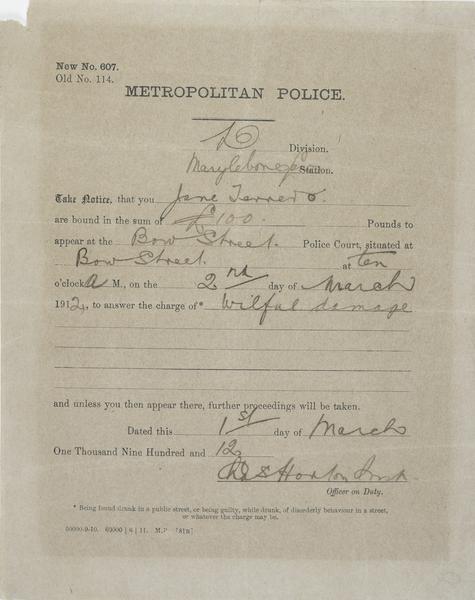 New No. 607.
Old No. 114.
METROPOLITAN POLICE.
D Division.
Marylebone Station.
Take Notice, that you Jane Terrero.
are bound in the sum of £100. Pounds to
appear at the Bow Street. Police Court, situated at
Bow Street. at ten
o'clock A M., on the 2nd day of March
1912, to answer the charge of* Wilful damage
and unless you then appear there, further proceedings will be taken.
Dated this 1st day of March
One Thousand Nine Hundred and 12.
Chas Horton
Officer on Duty.
* Being found drunk in a public street, or being guilty, while drunk, of disorderly behaviour in a street,
or whatever the charge may be.
60000 | 8 | 11. M.P